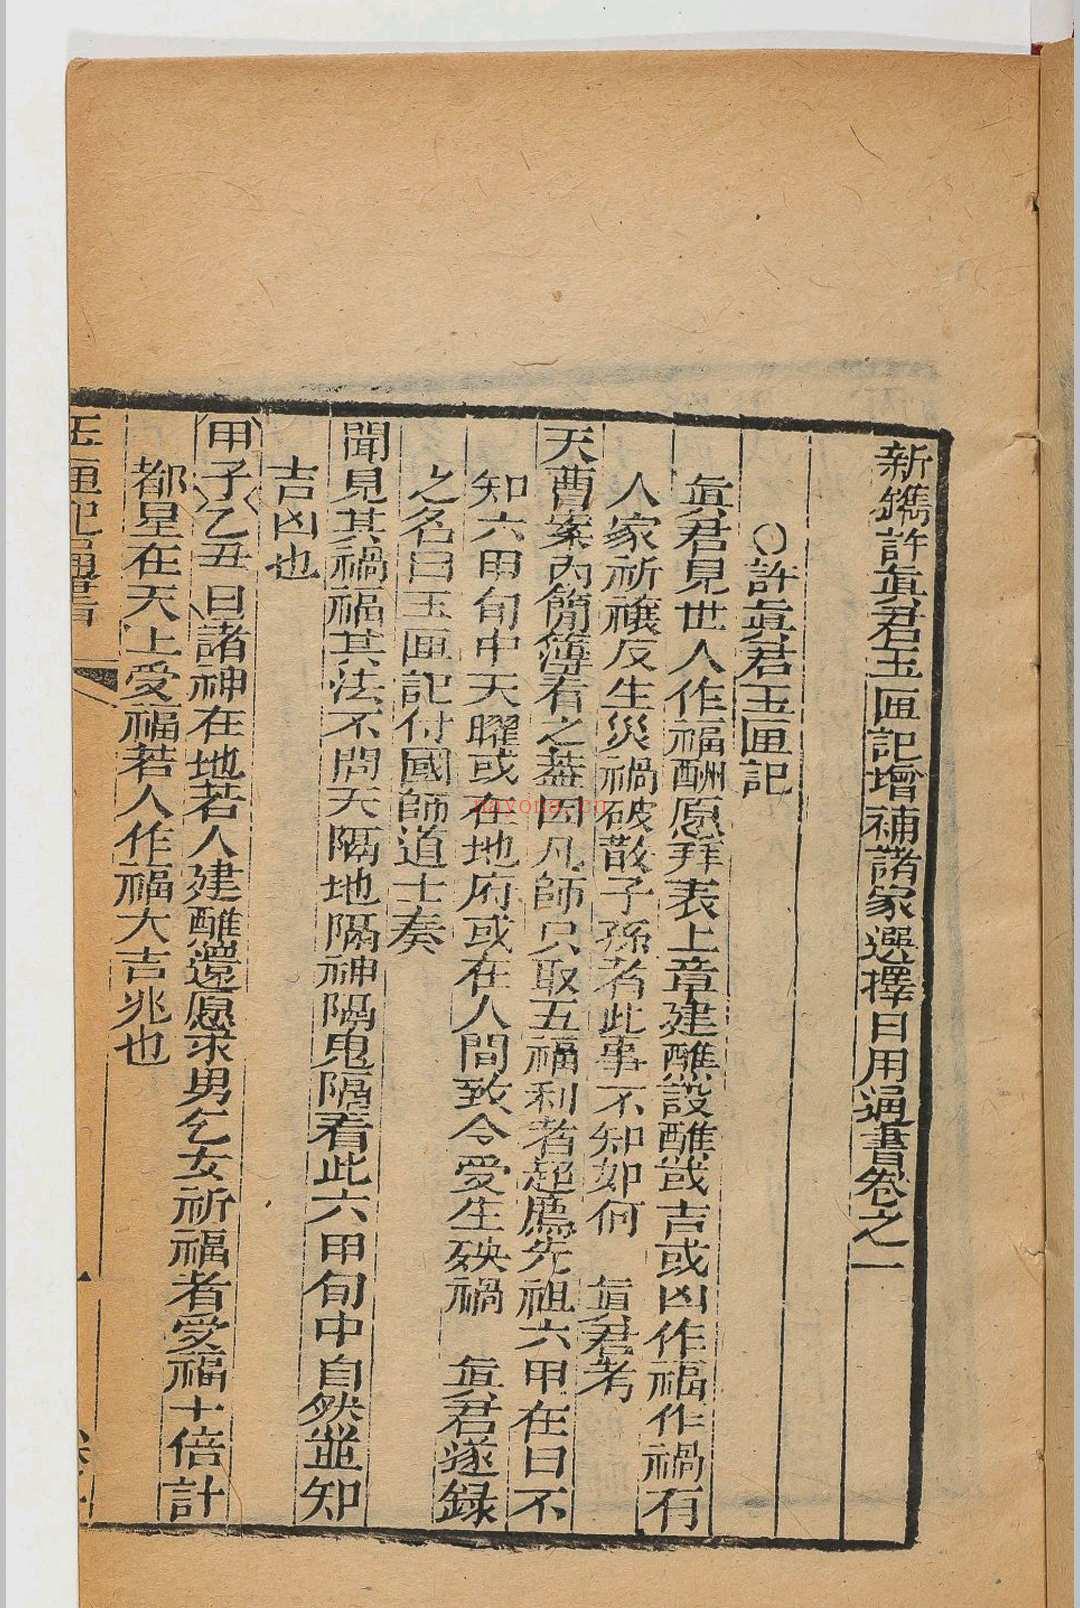 新鐫許眞君玉匣記增補諸家選擇日用通書卷之一
○許眞君玉匣記
眞君見世人作福酬愿拜表上章建醮設醮或吉或凶作福作禍有
人家祈禳反生災禍破散子孫者此事不知如何　眞君考
天曹案內簡簿看之葢因凡師只取五福利者超薦先祖六甲在日不
知六甲旬中天曜或在地府或在人間致令受生殃禍　眞君遂録
之名曰玉匣記付國師道士奏
聞見其禍福其法不問天隔地隔神隔鬼隔看此六甲旬中自然並知
吉凶也
甲子乙丑日諸神在地若人建醮還愿求男乞女祈福者受福十倍計
都星在天上受福若人作福大吉兆也
玉匣記通書
nayona.cn